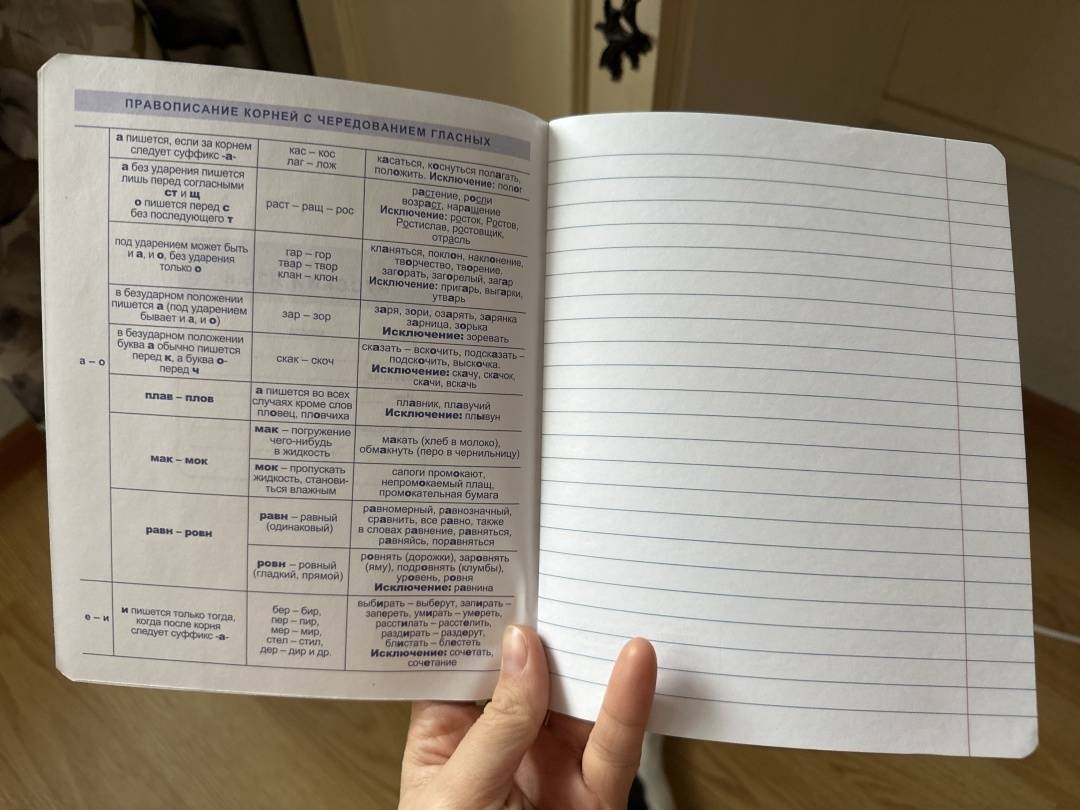 ПРАВОПИСАНИЕ КОРНЕЙ С ЧЕРЕДОВАНИЕМ ГЛАСНЫХ
а – о
а пишется, если за корнем
следует суффикс -а-
кас – кос
лаг – лож
касаться, коснуться полагать,
положить. Исключение: полог
а без ударения пишется
лишь перед согласными
ст и щ
о пишется перед с
без последующего т
раст – ращ – рос
растение, росли
возраст, наращение
Исключение: росток, Ростов,
Ростислав, ростовщик,
отрасль
под ударением может быть
и а, и о, без ударения
только о
гар – гор
твар – твор
клан – клон
кланяться, поклон, наклонение,
творчество, творение,
загорать, загорелый, загар
Исключение: пригарь, выгарки,
утварь
в безударном положении
пишется а (под ударением
бывает и а, и о)
зар – зор
заря, зори, озарять, зарянка
зарница, зорька
Исключение: зоревать
в безударном положении
буква а обычно пишется
перед к, а буква о-
перед ч
скак – скоч
сказать – вскочить, подсказать –
подскочить, выскочка.
Исключение: скачу, скачок,
скачи, вскачь
плав – плов
а пишется во всех
случаях кроме слов
пловец, пловчиха
плавник, плавучий
Исключение: плывун
мак – мок
мак – погружение
чего-нибудь
в жидкость
макать (хлеб в молоко),
обмакнуть (перо в чернильницу)
мок – пропускать
жидкость, станови-
ться влажным
сапоги промокают,
непромокаемый плащ,
промокательная бумага
равн – ровн
равн – равный
(одинаковый)
равномерный, равнозначный,
сравнить, все равно, также
в словах равнение, равняться,
равняйсь, поравняться
ровн – ровный
(гладкий, прямой)
ровнять (дорожки), заровнять
(яму), подровнять (клумбы),
уровень, ровня
Исключение: равнина
е – и
и пишется только тогда,
когда после корня
следует суффикс -а-
бер – бир,
пер – пир,
мер – мир,
стел – стил,
дер – дир и др.
выбирать – выберут, запирать –
запереть, умирать – умереть,
расстилать – расстелить,
раздирать – раздерут,
блистать – блестеть
Исключение: сочетать,
сочетание